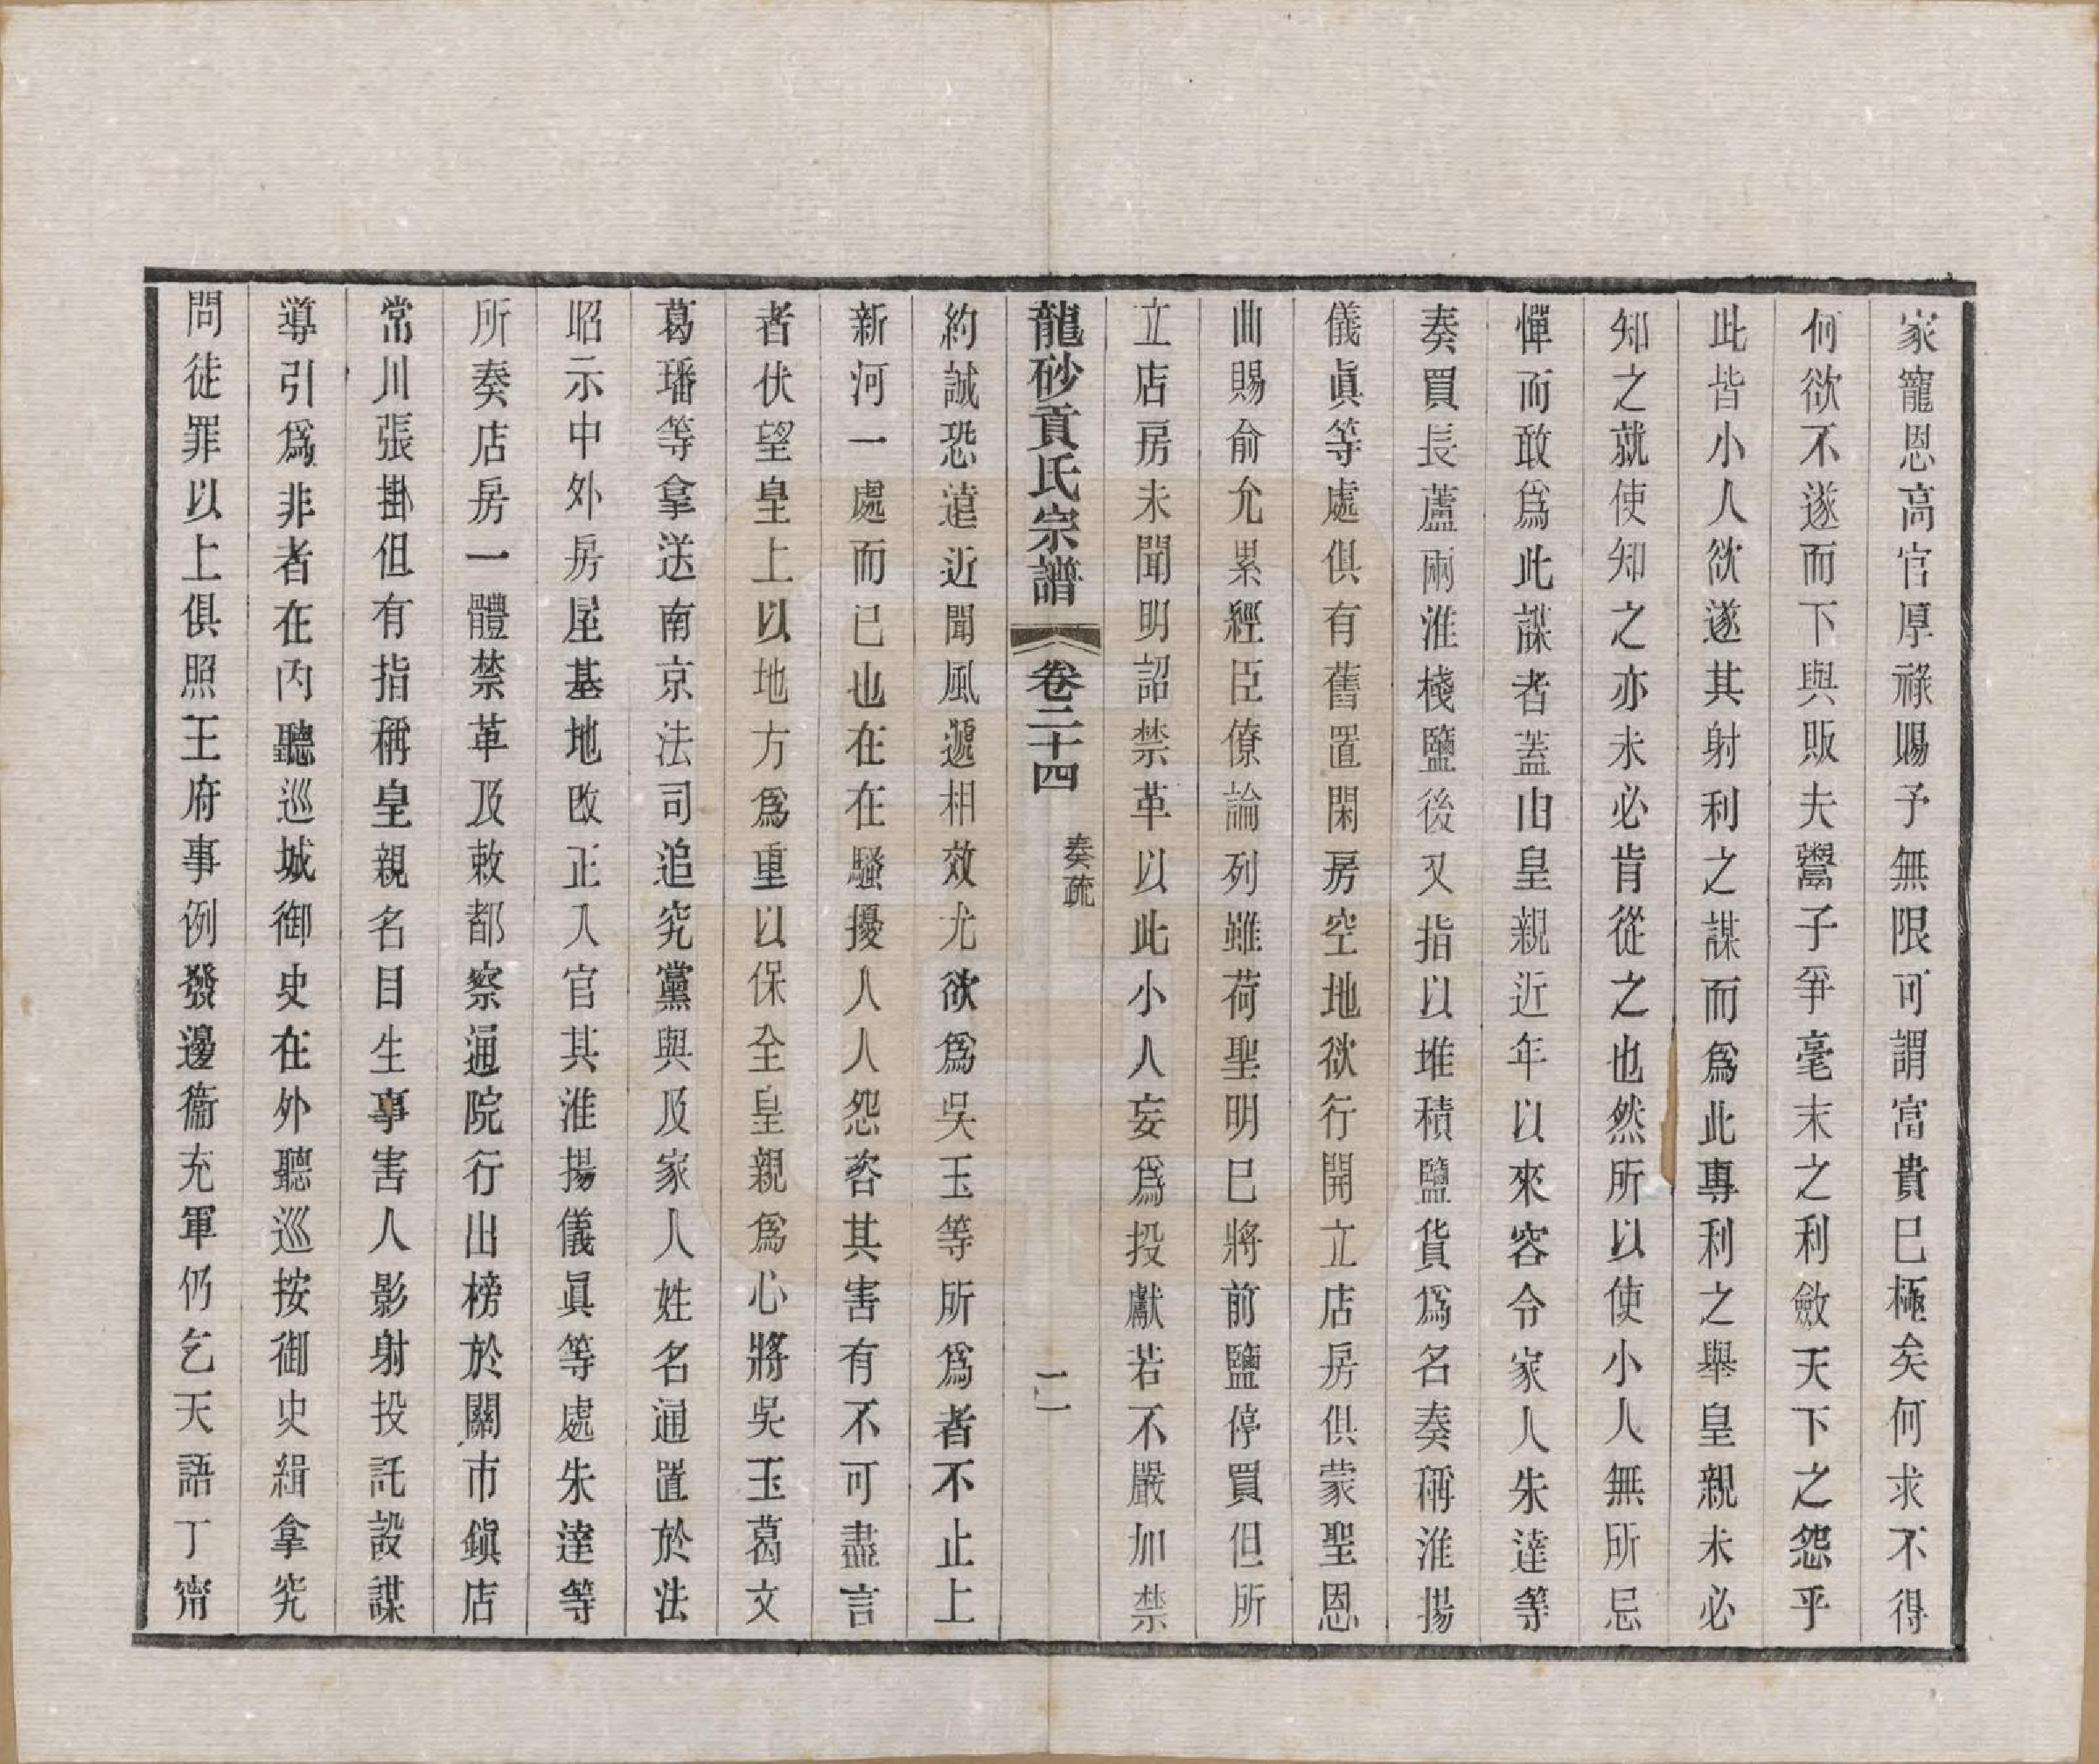 家寵恩高官厚祿賜予無限可謂富貴巳極矣何求不得
何欲不遂而下與販夫鬻子爭毫末之利斂天下之怨乎
此皆小人欲遂其射利之謀而爲此專利之舉皇親未必
知之就使知之亦未必肯從之也然所以使小人無所忌
憚而敢爲此謀者蓋由皇親近年以來容令家人朱達等
奏買長蘆兩淮殘鹽後又指以堆積鹽貨爲名奏稱淮揚
儀眞等處俱有舊置閑房空地欲行開立店房俱蒙聖恩
曲賜俞允累經臣僚論列雖荷聖明巳將前鹽停買但所
立店房未聞明詔禁革以此小人妄爲投獻若不嚴加禁
龍砂貢氏宗譜 卷二十四 奏疏 二
約誠恐遠近聞風遞相效尤欲爲吳玉等所爲者不止上
新河一處而已也在在騷擾人人怨咨其害有不可盡言
者伏望皇上以地方爲重以保全皇親爲心將吳玉葛文
葛璠等拿送南京法司追究黨與及家人姓名通置於法
昭示中外房屋基地改正入官其淮揚儀眞等處朱達等
所奏店房一體禁革及敕都察通院行出榜於關市鎭店
常川張掛但有指稱皇親名目生事害人影射投託設謀
導引爲非者在內聽巡城御史在外聽巡按御史緝拿究
問徒罪以上俱照王府事例發邊衞充軍仍乞天語丁甯